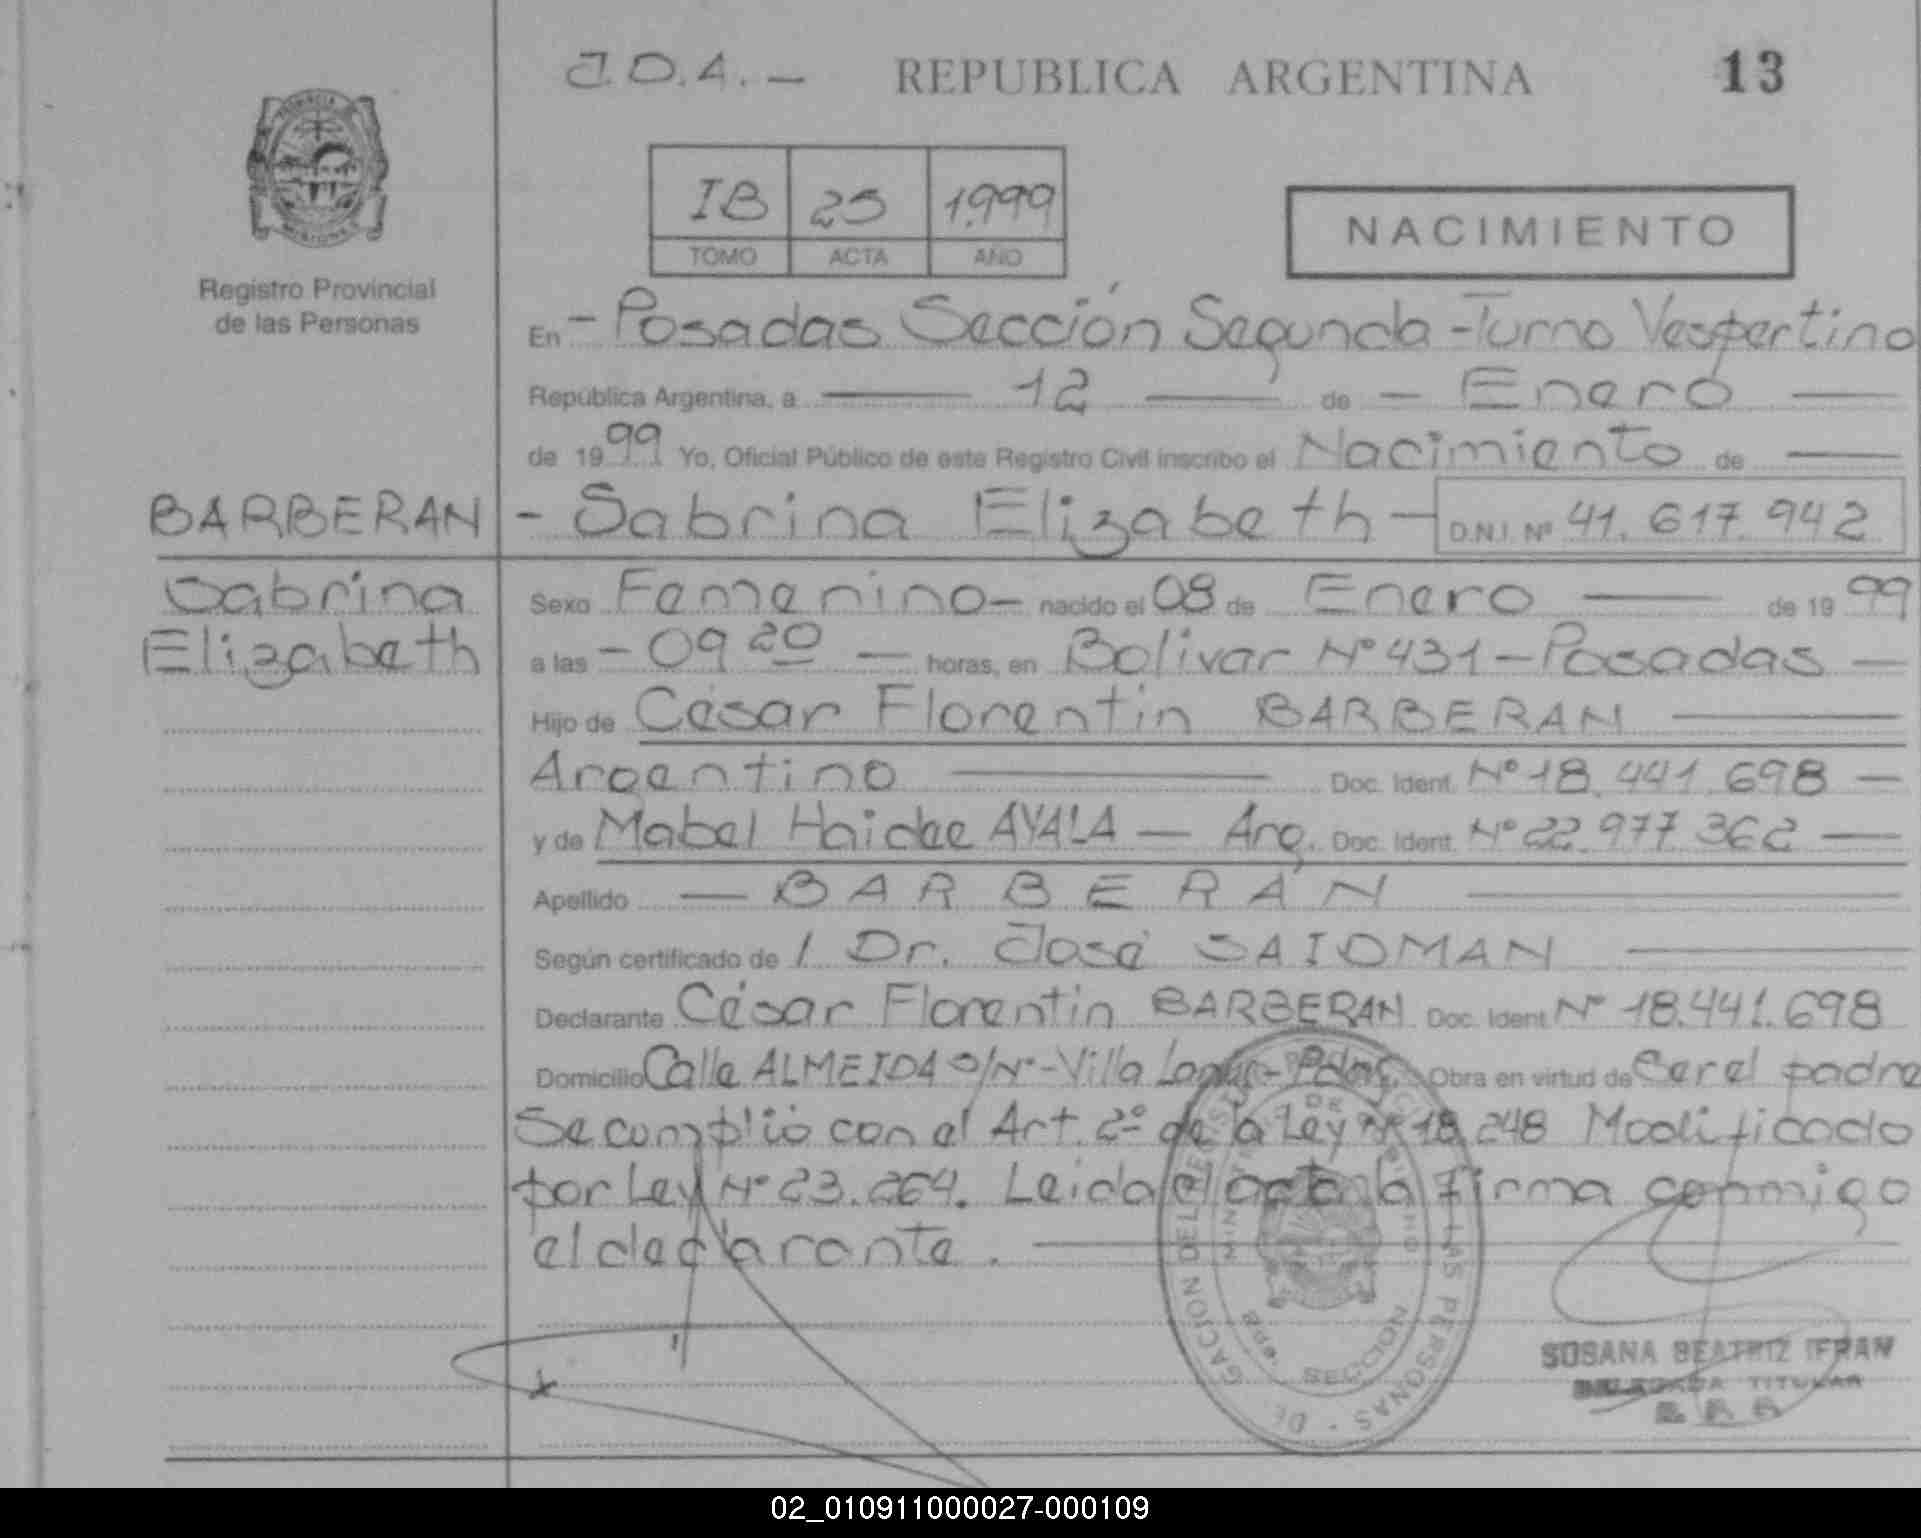 J.O.A. — REPUBLICA ARGENTINA 13
IB 25 1.999
TOMO ACTA AÑO
NACIMIENTO
PROVINCIA
MISIONES
Registro Provincial
de las Personas
En - Posadas Sección Segunda - Turno Vespertino
República Argentina, a — 12 — de — Enero —
de 1999 Yo, Oficial Público de este Registro Civil inscribo el Nacimiento de —
BARBERAN - Sabrina Elizabeth — D.N.I. Nº 41.617.942
Sabrina
Elizabeth
Sexo Femenino — nacido el 08 de Enero — de 1999
a las - 09 20 — horas, en Bolivar Nº 431 - Posadas —
Hijo de César Florentin BARBERAN —
Argentino — Doc. Ident. Nº 18.441.698 —
y de Mabel Haidee AYALA — Arg. Doc. Ident. Nº 22.977.362 —
Apellido — BARBERAN —
Según certificado de / Dr. José SAIDMAN —
Declarante César Florentin BARBERAN Doc. Ident. Nº 18.441.698
Domicilio Calle ALMEIDA S/Nº - Villa - Pdas. Obra en virtud de Ser el padre
Se cumplió con el Art. 2º de la Ley Nº 18.248 Modificado
por Ley Nº 23.264. Leida el acta la firma conmigo
el declarante. —
SECCION
SUSANA BEATRIZ IFRAN
DELEGADA TITULAR
02_010911000027-000109